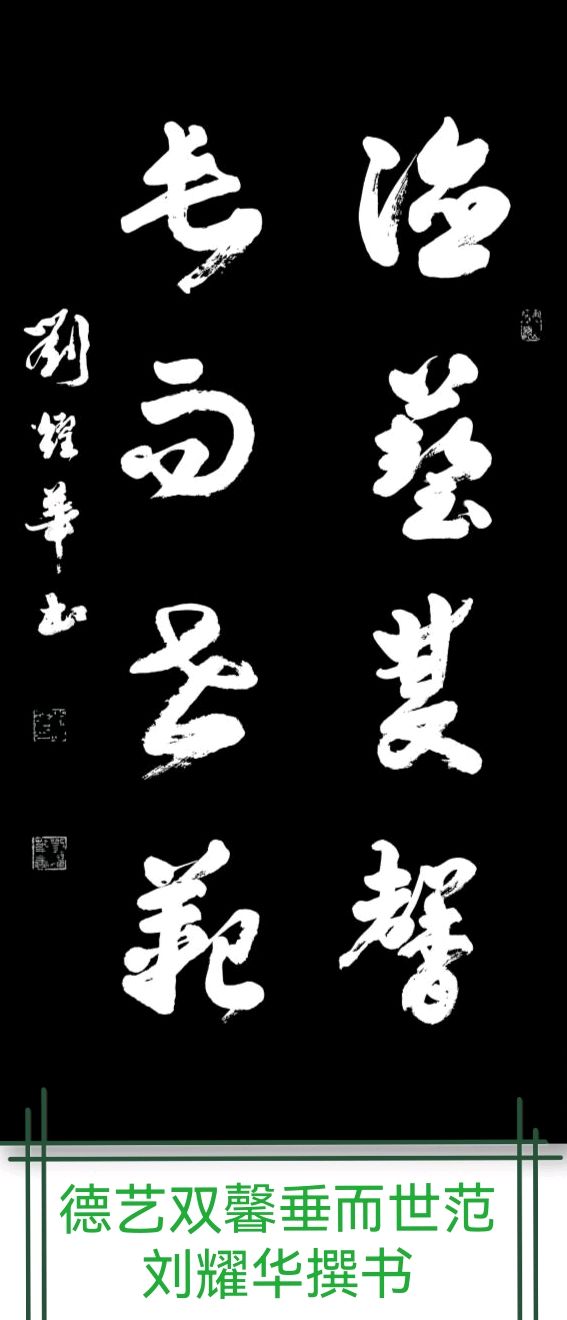 德藝雙馨
垂而世範
劉耀華書
德艺双馨垂而世范
刘耀华撰书